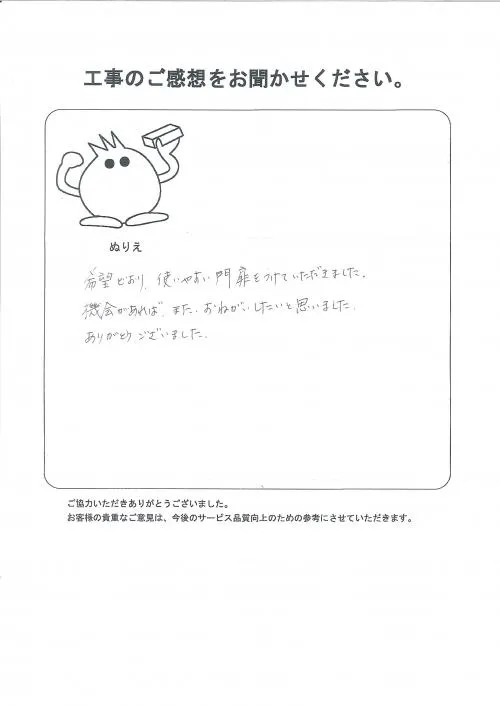 工事のご感想をお聞かせください。
ぬりえ
希望どおり、使いやすい門扉をつけていただきました。
機会があれば、また、おねがいしたいと思いました。
ありがとうございました。
ご協力いただきありがとうございました。
お客様の貴重なご意見は、今後のサービス品質向上のための参考にさせていただきます。